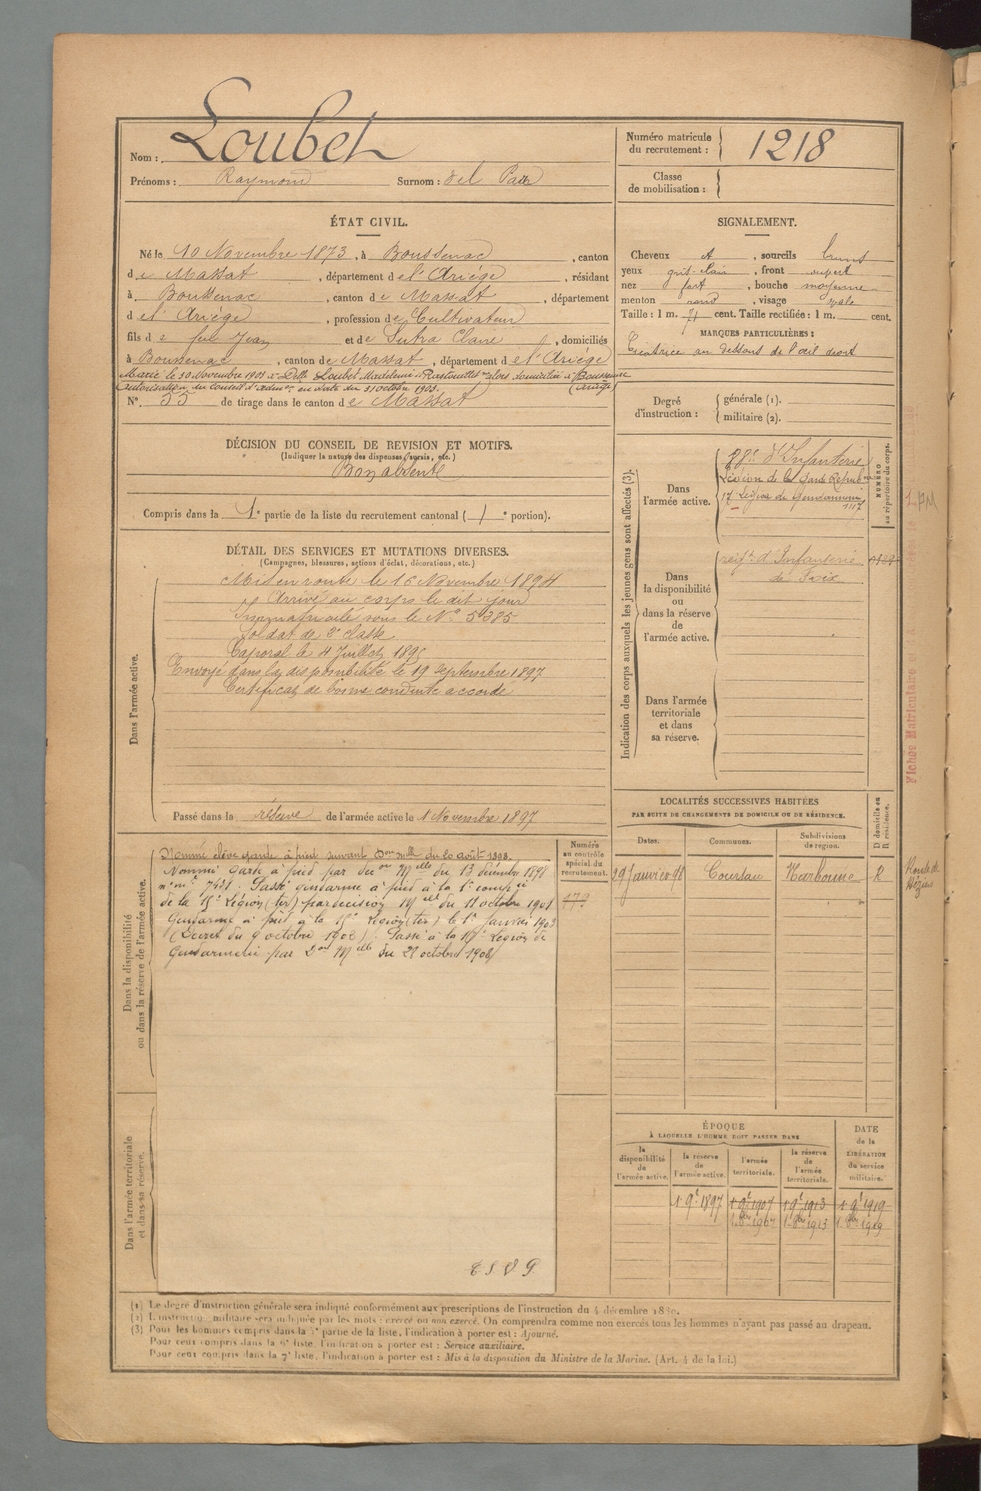 Nom : Loubet
Prénoms : Raymond Surnom : del
Numéro matricule du recrutement : 1218
Classe de mobilisation :
ÉTAT CIVIL.
Né le 10 Novembre 1873, à Boussenac, canton
de Massat, département de l'Ariège, résidant
à Boussenac, canton de Massat, département
de l'Ariège, profession de Cultivateur
fils de feu Jean et de Sutra Claire, domiciliés
à Boussenac, canton de Massat, département de l'Ariège
Marié le 30 Novembre 1903 à Delle Loubet Madeleine domiciliée à Boussenac
autorisation du Conseil d'admon en date du 31 Octobre 1903. (Ariège)
N° 55 de tirage dans le canton de Massat
SIGNALEMENT.
Cheveux et, sourcils bruns
yeux gris-clair, front
nez fort, bouche moyenne
menton rond, visage ovale
Taille : 1 m. 71 cent. Taille rectifiée : 1 m. cent.
MARQUES PARTICULIÈRES :
Cicatrice au dessous de l'œil droit
Degré d'instruction : générale (1).
militaire (2).
DÉCISION DU CONSEIL DE REVISION ET MOTIFS.
(Indiquer la nature des dispenses, sursis, etc.)
Bon absent
Compris dans la 1e partie de la liste du recrutement cantonal (1e portion).
DÉTAIL DES SERVICES ET MUTATIONS DIVERSES.
(Campagnes, blessures, actions d'éclat, décorations, etc.)
Dans l'armée active.
Mis en route le 16 Novembre 1894
Arrivé au corps le dit jour
Immatriculé sous le N° 5385
Soldat de 2e classe
Caporal le 4 Juillet 1895
Envoyé dans la disponibilité le 19 Septembre 1897
Certificat de bonne conduite accordé
Passé dans la réserve de l'armée active le 1 Novembre 1897
Indication des corps auxquels les jeunes gens sont affectés (3).
NUMÉRO au répertoire du corps.
Dans l'armée active.
d'Infanterie
Légion de la Garde Républne
17e Légion de Gendarmerie
1117
Dans la disponibilité ou dans la réserve de l'armée active.
regt d'Infanterie
de Foix
Dans l'armée territoriale et dans sa réserve.
Dans la disponibilité ou dans la réserve de l'armée active.
Nommé élève garde à pied suivant Don mlle du 20 août 1898.
Nommé Garde à pied par don Mlle du 13 décembre 1898
n° mle 7431. Passé gendarme à pied à la
de la 15e Légion (ter) par décision Mlle du 11 octobre 1901
Gendarme à pied à la 15e Légion (ter) le 1er Janvier 1903
(Décret du 9 octobre 1902). Passé à la 17e Légion de
Gendarmerie par Don Mlle du 29 octobre 1908
T S V P
Numéro au contrôle spécial du recrutement.
Dans l'armée territoriale et dans sa réserve.
LOCALITÉS SUCCESSIVES HABITÉES
PAR SUITE DE CHANGEMENTS DE DOMICILE OU DE RÉSIDENCE.
Dates. Communes. Subdivisions de région. D domicile ou R résidence.
29 Janvier 98 Coursan Narbonne R Route de Béziers
ÉPOQUE
À LAQUELLE L'HOMME DOIT PASSER DANS
DATE de la LIBÉRATION du service militaire.
la disponibilité de l'armée active. la réserve de l'armée active. l'armée territoriale. la réserve de l'armée territoriale.
1 9e 1897 1 9e 1907 1 9e 1913 1 9e 1919
1 8bre 1907 1 8bre 1913 1 8bre 1919
(1) Le degré d'instruction générale sera indiqué conformément aux prescriptions de l'instruction du 4 décembre 1889.
(2) L'instruction militaire sera indiquée par les mots : exercé ou non exercé. On comprendra comme non exercés tous les hommes n'ayant pas passé au drapeau.
(3) Pour les hommes compris dans la partie de la liste, l'indication à porter est : Ajourné.
Pour ceux compris dans la liste, l'indication à porter est : Service auxiliaire.
Pour ceux compris dans la 7e liste, l'indication à porter est : Mis à la disposition du Ministre de la Marine. (Art. 4 de la loi.)
Fiches Matriculaire